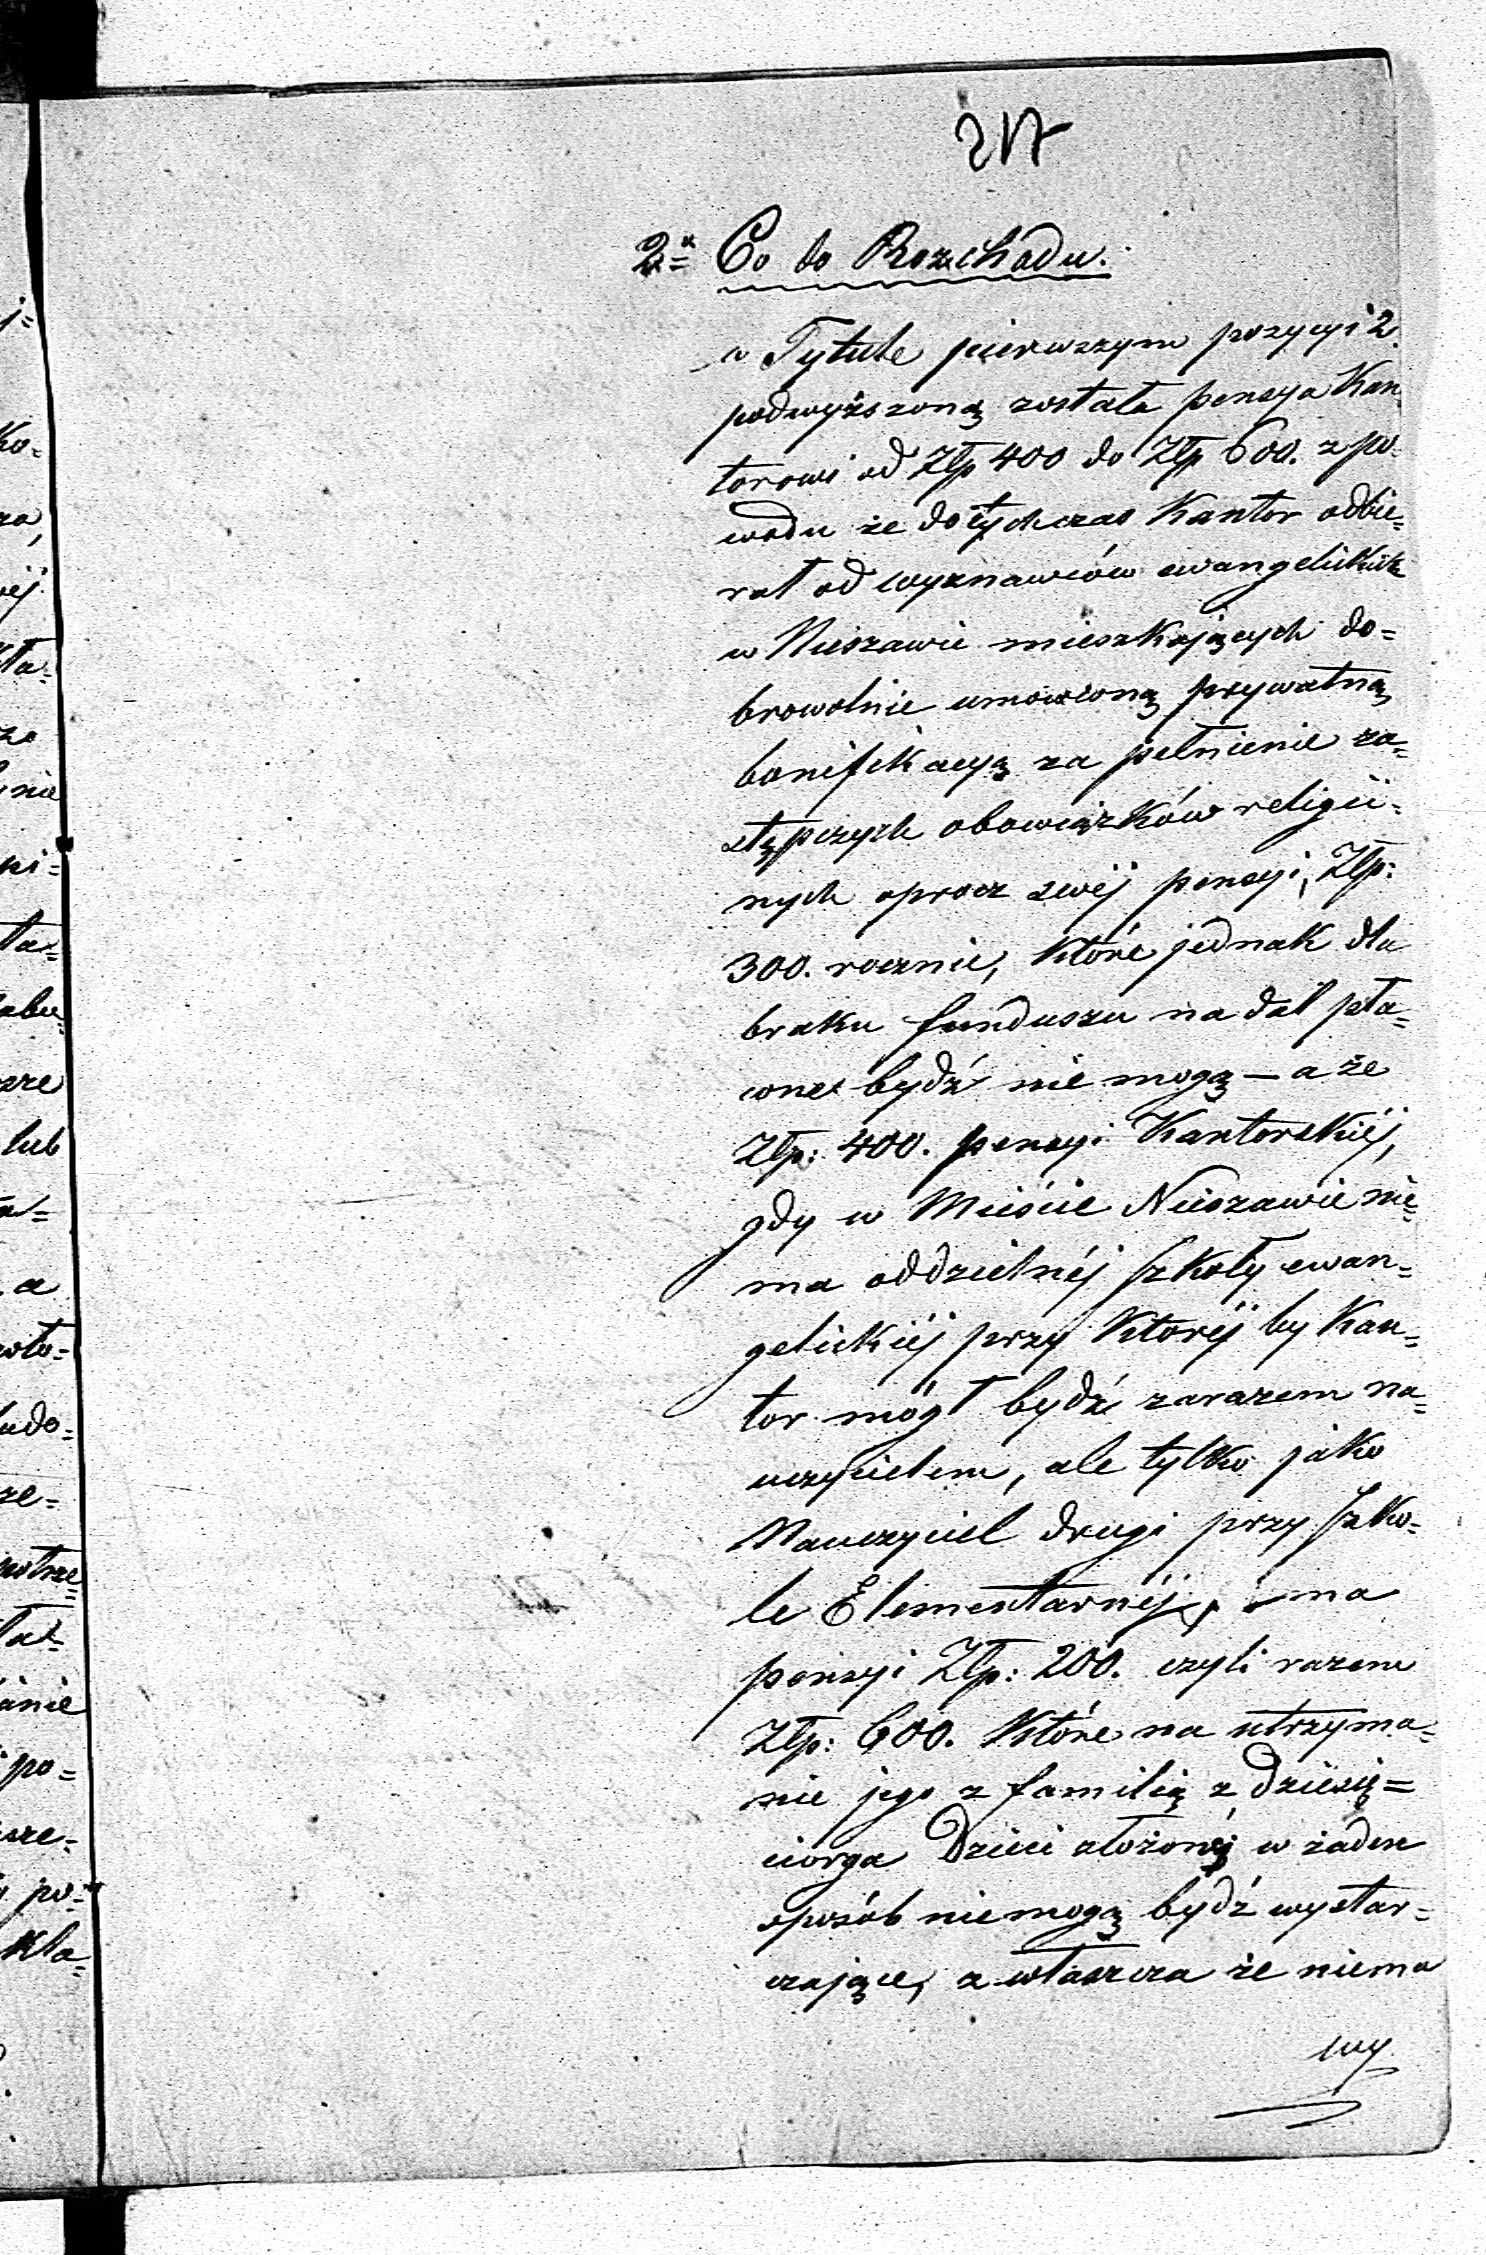 217
2° Co do Rozchodu.
w Tytule pierwszym pozycyi 2.
podwyższoną została pensya Kan
torowi od Złp 400 do Złp 600. z po-
wodu że dotychczas Kantor odbie=
rał od wyznawców ewangelickich
w Nieszawie mieszkających do=
browolnie umówioną prywatną
bonifikacyą za pełnienie za=
stępczych obowiązków religii=
nych oprocz swéj pensyi, Złp:
300. rocznie, które jednak dla
braku funduszu nadal pła=
cone bydź nie mogą – a że
Złp: 400. pensyi Kantorskiéj,
gdy w Mieście Nieszawie nie=
ma oddzielnéj szkoły ewan=
gelickiéj przy któréj by Kan=
tor mógł bydź zarazem na=
uczycielem, ale tylko jako
Nauczyciel drugi przy szko=
le Elementarnéj, ma
pensyi Złp: 200. czyli razem
Złp: 600. które na utrzyma=
nie jego z familią z dziesię=
ciorga Dzieci złożoną w żaden
sposób niemogą bydź wystar=
czające, a właszcza że niema
wy
j=
Ko=
za,
éj
kła=
nie
ni=
ła=
abu=
sze
lub
a
oło=
udo=
ze=
potrze=
anie
po=
sze=
po=
kła=